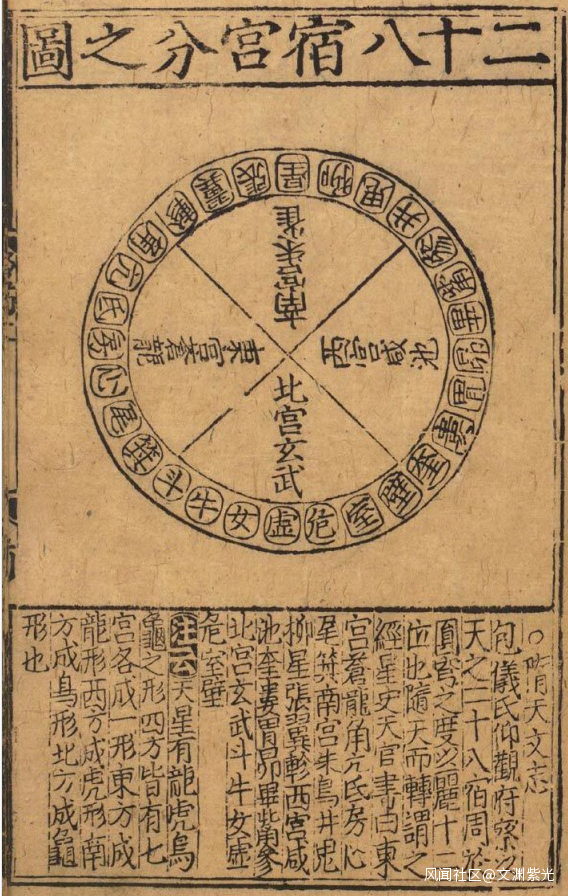 二十八宿宮分之圖
角亢氐房心尾箕斗牛女虛危室壁奎婁胃昴畢觜參井鬼柳星張翼軫
南宮朱雀
東宮蒼龍
西宮咸池
北宮玄武
○隋天文志
包儀氏仰觀府察以
天之二十八宿周於
圓穹之度以麗十二
位也隨天而轉謂之
經星史天官書曰東
宮蒼龍角亢氐房心
尾箕南宮朱鳥井鬼
柳星張翼軫西宮咸
池奎婁胃昴畢觜參
北宮玄武斗牛女虛
危室壁
注云天星有龍虎鳥
龜之形四方皆有七
宮各成一形東方成
龍形西方成虎形南
方成鳥形北方成龜
形也
风闻社区@文渊紫光